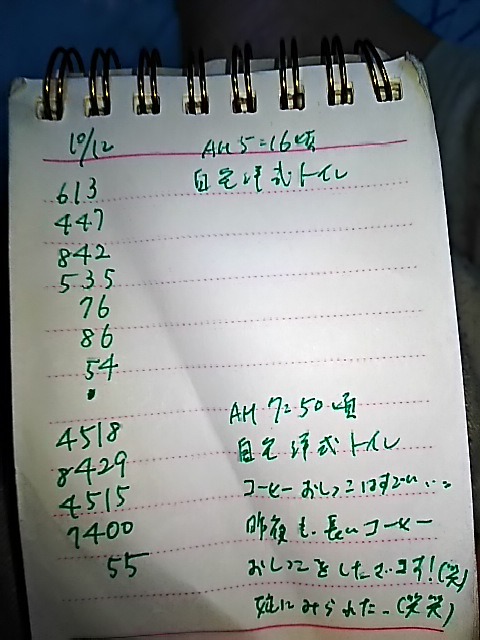 10/12 AM 5:16頃
613 自宅洋式トイレ
447
842
535
76
86
54
・
AM 7:50頃
4518 自宅洋式トイレ
8429
4515 コーヒーおしっこはすごい…
7400 昨夜も、長いコーヒー
55 おしっこをしたでます!(笑)
にみられた。(笑笑)